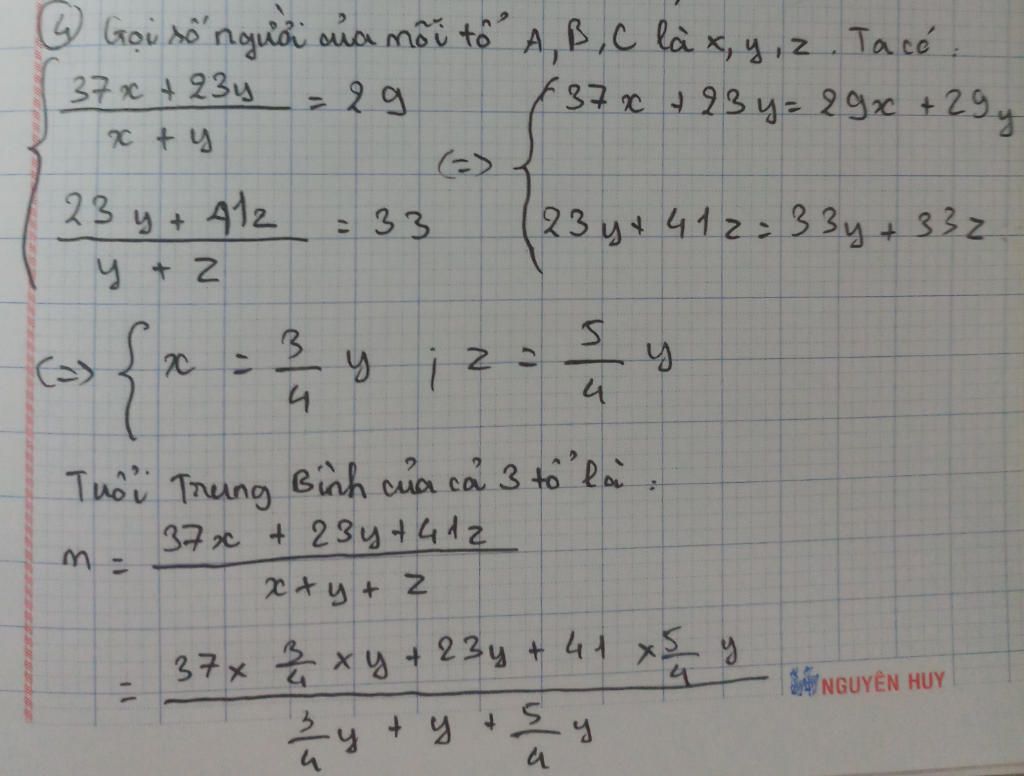 ④ Gọi số người của mỗi tổ A, B, C là x, y, z. Ta có:
{ (37x + 23y)/(x + y) = 29 (=> { 37x + 23y = 29x + 29y
(23y + 41z)/(y + z) = 33 23y + 41z = 33y + 33z
(=> { x = 3/4 y ; z = 5/4 y
Tuổi Trung Bình của cả 3 tổ là:
m = (37x + 23y + 41z)/(x + y + z)
= (37 × 3/4 × y + 23y + 41 × 5/4 y)/(3/4 y + y + 5/4 y)
NGUYÊN HUY